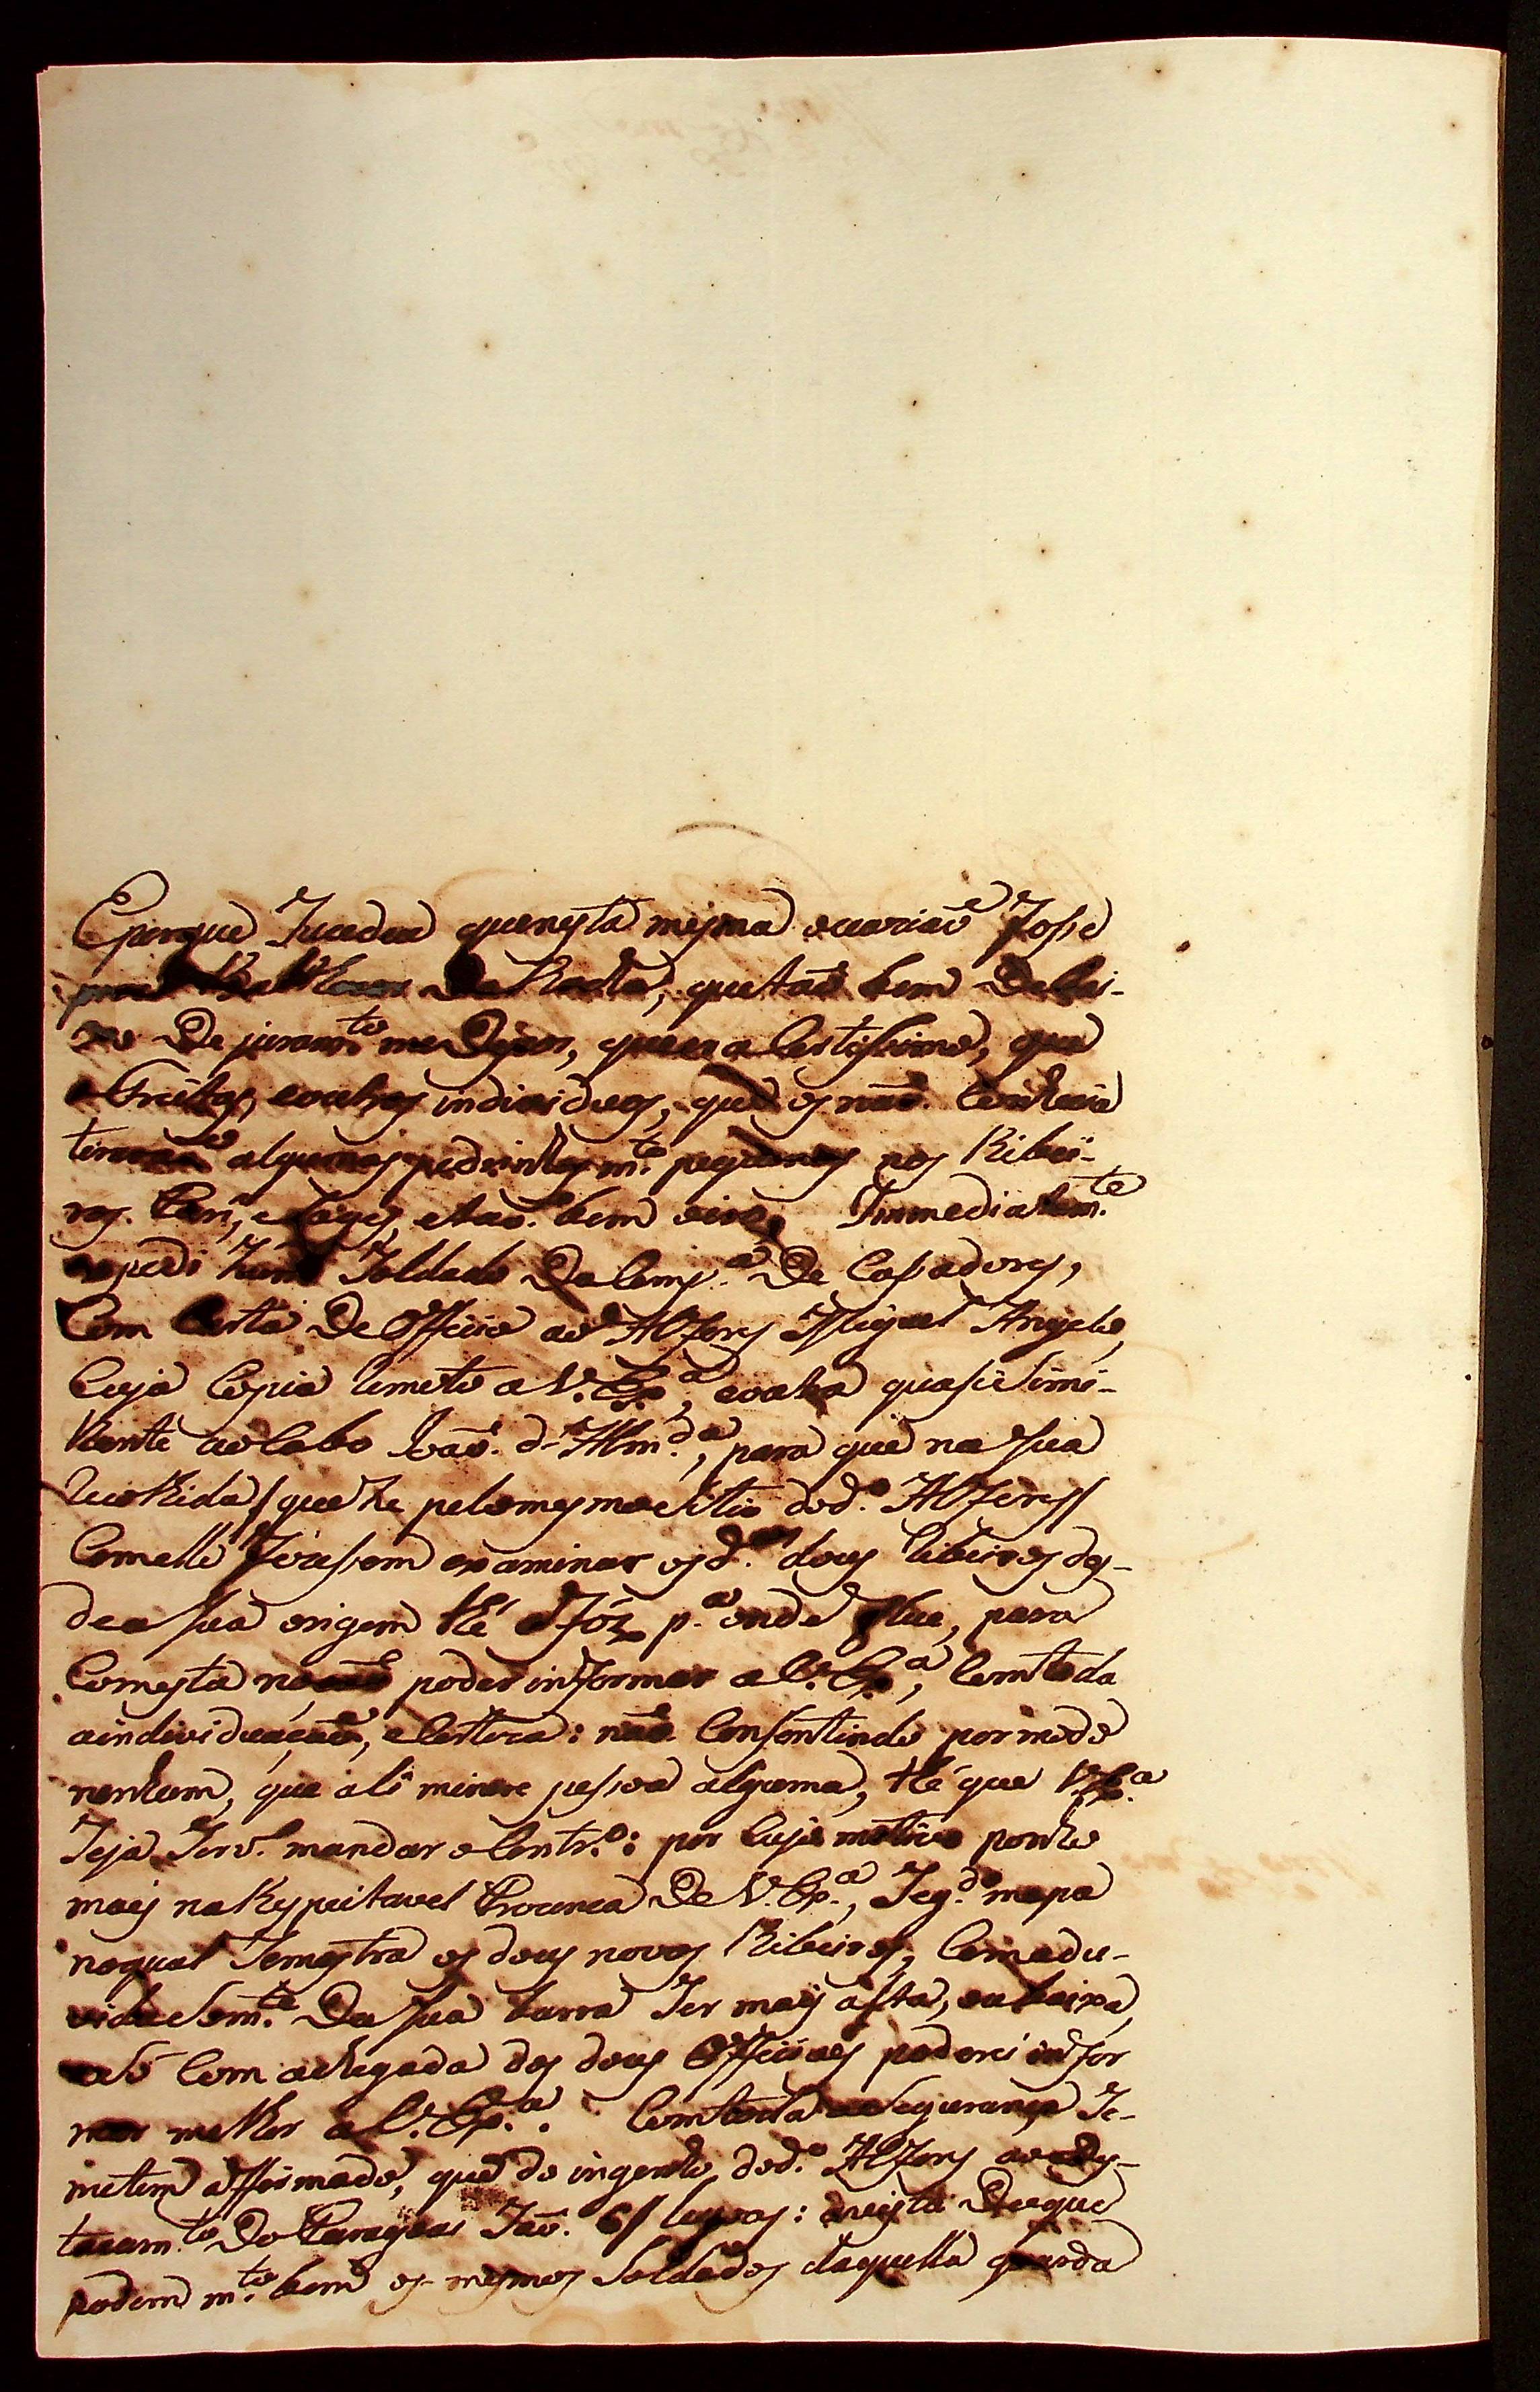 E porque Sucedeu que nesta mesma occaziaõ Joze
da Rocha, que taõ bem debai-
xo de juram.to me dizer, que era certissimo, que
o Freitas, e outros individuos, que os naõ conhecia
tiraraõ algumas pedrinhas m.to pequenas nos Ribei-
ros. Cari, e Lages, e taõ bem oiro. Immediatam.te
expedi hum Soldado da Comp.a de Cassadores,
Com Carta de Officio ao Alferes Miguel Angelo,
Cuja Copia Remeto a V. Ex.a, e outra quasi simi-
lhante ao Cabo Joaõ d'Alm.da, para que na sua
Recolhida / que he pelo mesmo citio do d.o Alferes /
Com elle fosssem examinar os d.os dous Ribeiros des-
de a sua origem thé a Fóz p.a onde flue, para
Com esta poder informar a V. Ex.a, Com toda
a individuaçaõ, e Certeza: naõ Consentindo por modo
nenhum, que ali minere pessoa alguma, thé que V. Ex.a
Seja Serv.o mandar o Contr.o: por Cujo motivo ponho
mais na Respeitavel Prezença de V. Ex.a, Seg.do mapa
no qual Se mostra os dous novos Ribeiros, Com a du-
vida Som.te da sua barra Ser mais alta, ou baixa,
e Só Com a chegada dos dous Officiaes poderei infor
mar melhor a V. Ex.a. Com toda a Segurança Se
me tem affirmado, que do ingenho do d.o Alferes ao des-
tacam.to do Paraguai Saõ 6/ legoas: avista do que
podem m.to bem os mesmos Soldados daquella guarda